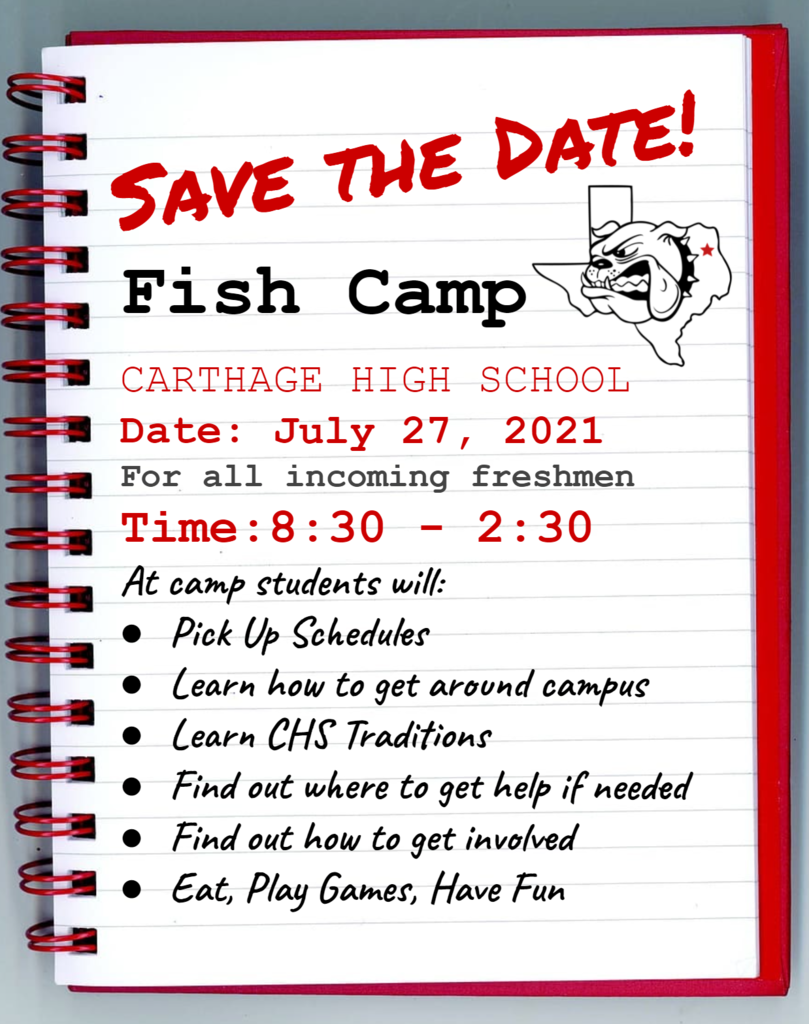 SAVE THE DATE!
Fish Camp
CARTHAGE HIGH SCHOOL
Date: July 27, 2021
For all incoming freshmen
Time:8:30 - 2:30
At camp students will:
● Pick Up Schedules
● Learn how to get around campus
● Learn CHS Traditions
● Find out where to get help if needed
● Find out how to get involved
● Eat, Play Games, Have Fun